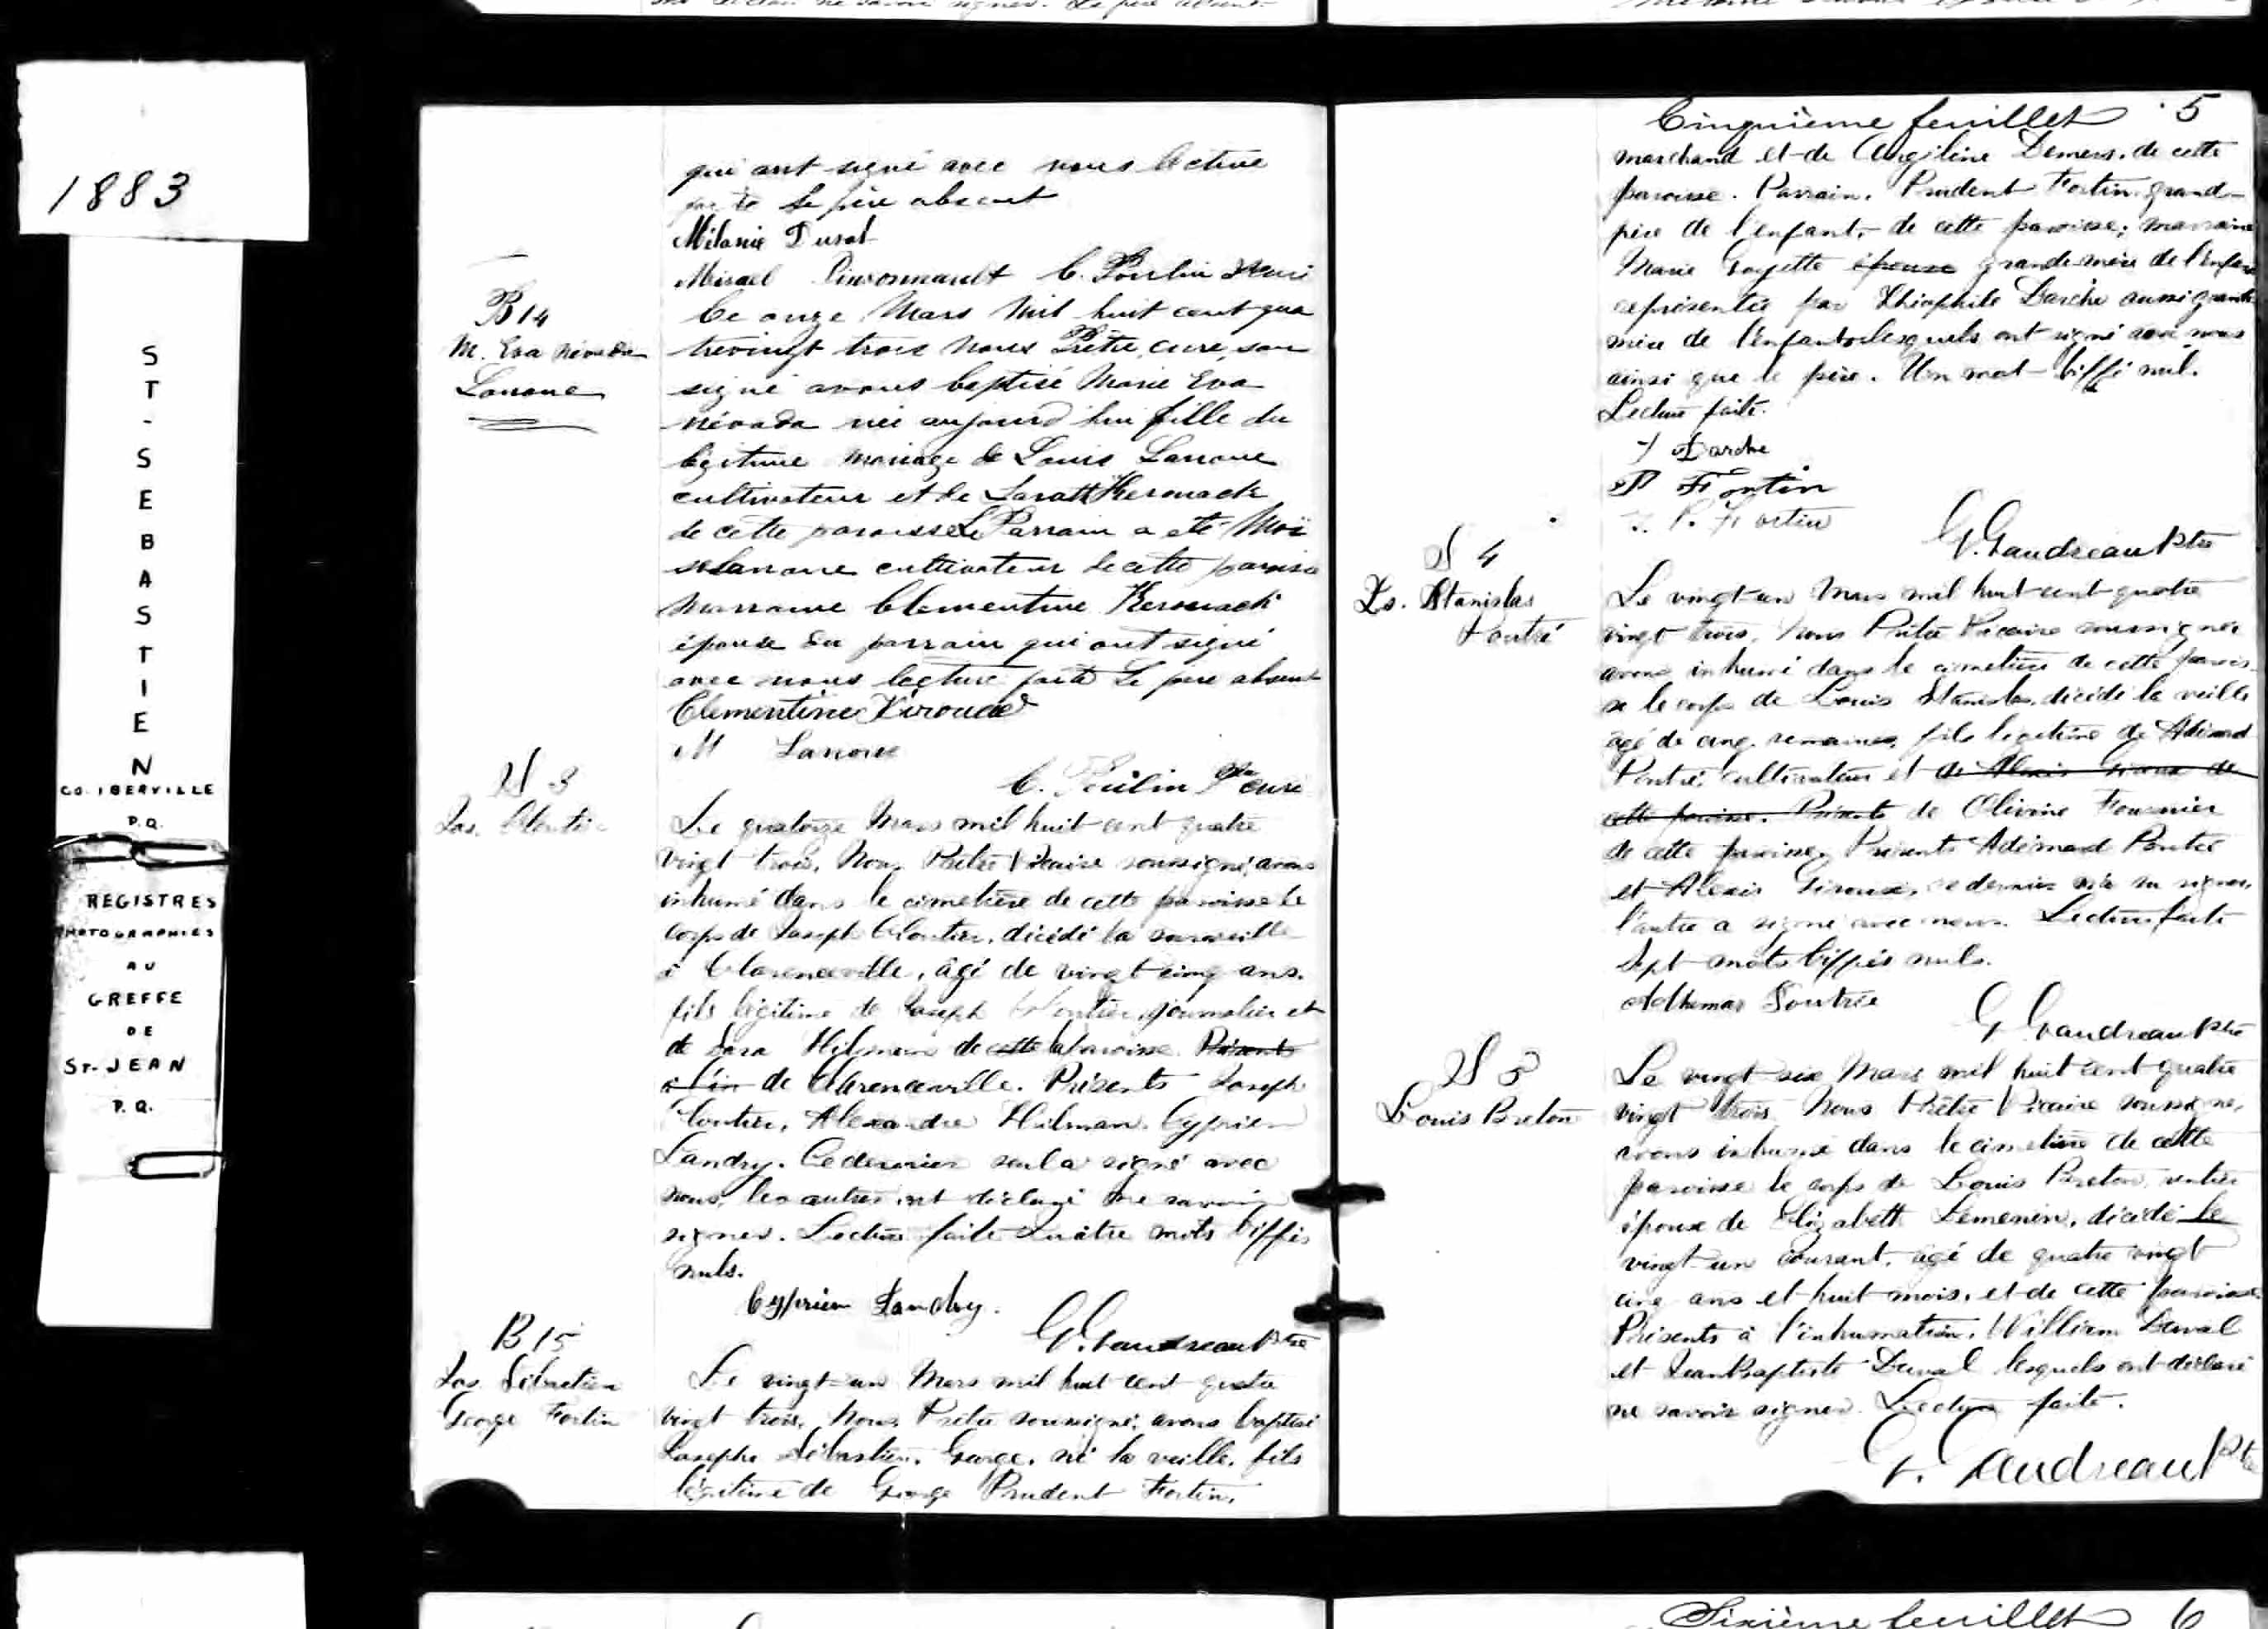 1883
ST-SEBASTIEN
CO. IBERVILLE
P.Q.
REGISTRES
PHOTOGRAPHIÉS
AU
GREFFE
DE
ST-JEAN
P.Q.
qui ont signé avec nous lecture
faite le père absent
Mélanie Duval
Misael Pinsonnault C. Poulin
B 14
M. Eva Névada
Lanoue
Ce onze Mars Mil huit cent qua
trevingt trois nous Prêtre, curé, sou
signé avons baptisé Marie Eva
névada née aujourd'hui fille du
légitime mariage de Louis Lanoue
cultivateur et de Sarah Kerouack
de cette paroisse Le Parrain a été Moï
se Lanoue cultivateur de cette paroisse
Marraine Clementine Kerouack
épouse du parrain qui ont signé
avec nous lecture faite Le père absent
Clementine Kirouac
M Lanoue
C. Poulin Ptre curé
S 3
Jos. Cloutier
Le quatorze Mars mil huit cent quatre
vingt trois, Nous Prêtre Vicaire soussigné, avons
inhumé dans le cimetière de cette paroisse le
corps de Joseph Cloutier, décédé la surveille
à Clarenceville, âgé de vingt cinq ans.
fils légitime de Joseph Cloutier, journalier et
de Sara de cette la Paroisse Présents
à l'in de Clarenceville. Présents Joseph
Cloutier, Alexandre Hilman, Cyprien
Landry. Ce dernier seul a signé avec
nous, les autres ont déclaré ne savoir
signer. Lecture faite Quatre mots biffés
nuls.
Cyprien Landry.
G. Gaudreau Ptre
B 15
Jos. Sébastien
George Fortin
Le vingt-un Mars mil huit cent quatre
vingt trois, Nous, Prêtre soussigné, avons baptisé
Joseph Sébastien, George, né la veille, fils
légitime de George Prudent Fortin,
Cinquième feuillet 5
marchand et de Angéline Demers, de cette
paroisse. Parrain, Prudent Fortin grand-
père de l'enfant, de cette paroisse; marraine
Marie Goyette épouse grande-mère de l'enfant
représentée par Théophile Darche aussi grande
mère de l'enfant lesquels ont signé avec nous
ainsi que le père. Un mot biffé nul.
Lecture faite.
Darche
P Fortin
P. Fortin
G. Gaudreau Ptre
S 4
Ls. Stanislas
Poutré
Le vingt-un Mars mil huit cent quatre
vingt trois, Nous Prêtre Vicaire soussigné
avons inhumé dans le cimetière de cette parois-
se le corps de Louis Stanislas, décédé la veille
âgé de cinq semaines, fils légitime de Adémard
Poutré, cultivateur et de Alexis Giroux de
cette paroisse. Présents de Olivine Fournier
de cette paroisse, Présents Adémard Poutré
et Alexis Giroux, ce dernier n'a su signer,
l'autre a signé avec nous. Lecture faite
Sept mots biffés nuls.
Adhemar Poutrée
G. Gaudreau Ptre
S 5
Louis Breton
Le vingt-six Mars mil huit cent quatre
vingt trois, Nous Prêtre Vicaire soussigné,
avons inhumé dans le cimetière de cette
paroisse le corps de Louis Breton, rentier
époux de Elizabeth Lemenin, décédé le
vingt-un courant, âgé de quatre vingt
cinq ans et huit mois, et de cette paroisse.
Présents à l'inhumation, William Duval
et Jean Baptiste Duval lesquels ont déclaré
ne savoir signer. Lecture faite.
G. Gaudreau Ptre
Sixième feuillet 6